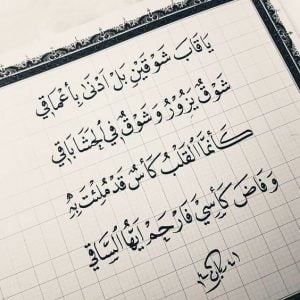 يَا قَابَ شَوْقَيْنِ بَلْ أَدْنَى بِأَعْمَاقِي
شَوْقٌ يَزُورُ وَشَوْقٌ فِي الْحَشَا بَاقِي
كَأَنَّمَا الْقَلْبُ كَأْسٌ قَدْ مُلِئَتْ بِهِ
وَفَاضَ كَأْسِي فَارْحَمْ أَيُّهَا السَّاقِي